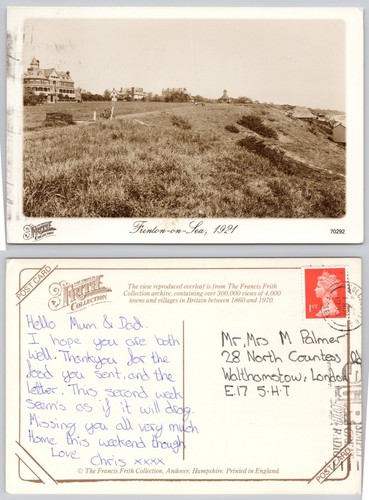 THE FRANCIS
FRITH
COLLECTION
Frinton-on-Sea, 1921
70292
POST CARD
THE FRANCIS
FRITH
COLLECTION
The view reproduced overleaf is from The Francis Frith
Collection archive, containing over 300,000 views of 4,000
towns and villages in Britain between 1860 and 1970.
1ST
Hello Mum & Dad.
I hope you are both
well. Thankyou for the
food you sent, and the
letter. This second week
seem's as if it will drag.
Missing you all very much
Home this weekend though
Love
Chris xxxx
Mr, Mrs M Palmer
28 North Countess Rd
Walthamstow, London
E.17 5.H.T
POSTCARD
© The Francis Frith Collection, Andover, Hampshire. Printed in England.